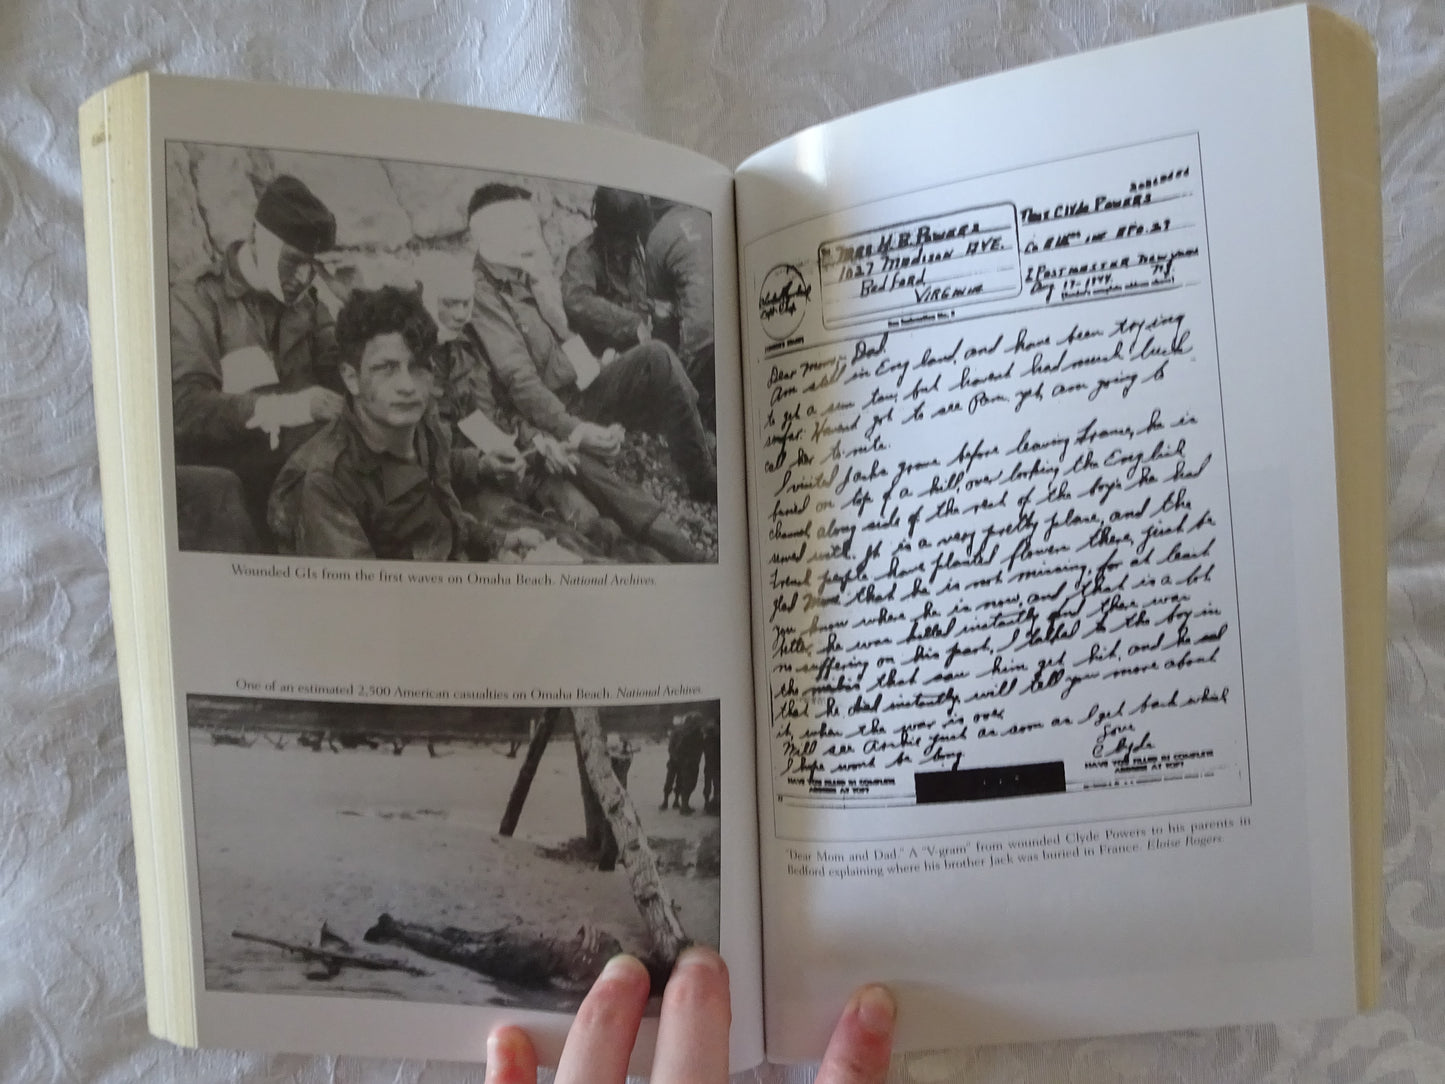 Wounded GIs from the first waves on Omaha Beach. National Archives.
One of an estimated 2,500 American casualties on Omaha Beach. National Archives.
To
MRS H. B. POWERS
1027 MADISON AVE.
Bedford
VIRGINIA
From Clyde Powers
Co B 115th INF APO. 29
% POSTMASTER New York
Aug 17-1944 NY.
See Instruction No. 2
Dear Mom, Dad.
Am still in England and have been trying
to get a few days, but havent had much luck
sofar. Havent got to see Pam yet, am going to
call her to-nite.
I visited Jacks grave before leaving France, he is
buried on top of a hill over looking the English
channel along side of the rest of the boys he had
served with. It is a very pretty place, and the
French people have planted flowers there, just be
glad Mom that he is not missing, for at least
you know where he is now, and that is a lot
better, he was killed instantly and there was
no suffering on his part. I talked to the boy in
the that saw him get hit, and he said
that he died instantly, will tell you more about
it, when the war is over.
Will see Archie just as soon as I get back which
I hope wont be long
Love
Clyde
HAVE YOU FILLED IN COMPLETE
ADDRESS AT TOP?
HAVE YOU FILLED IN COMPLETE
ADDRESS AT TOP?
"Dear Mom and Dad." A "V-gram" from wounded Clyde Powers to his parents in
Bedford explaining where his brother Jack was buried in France. Eloise Rogers.